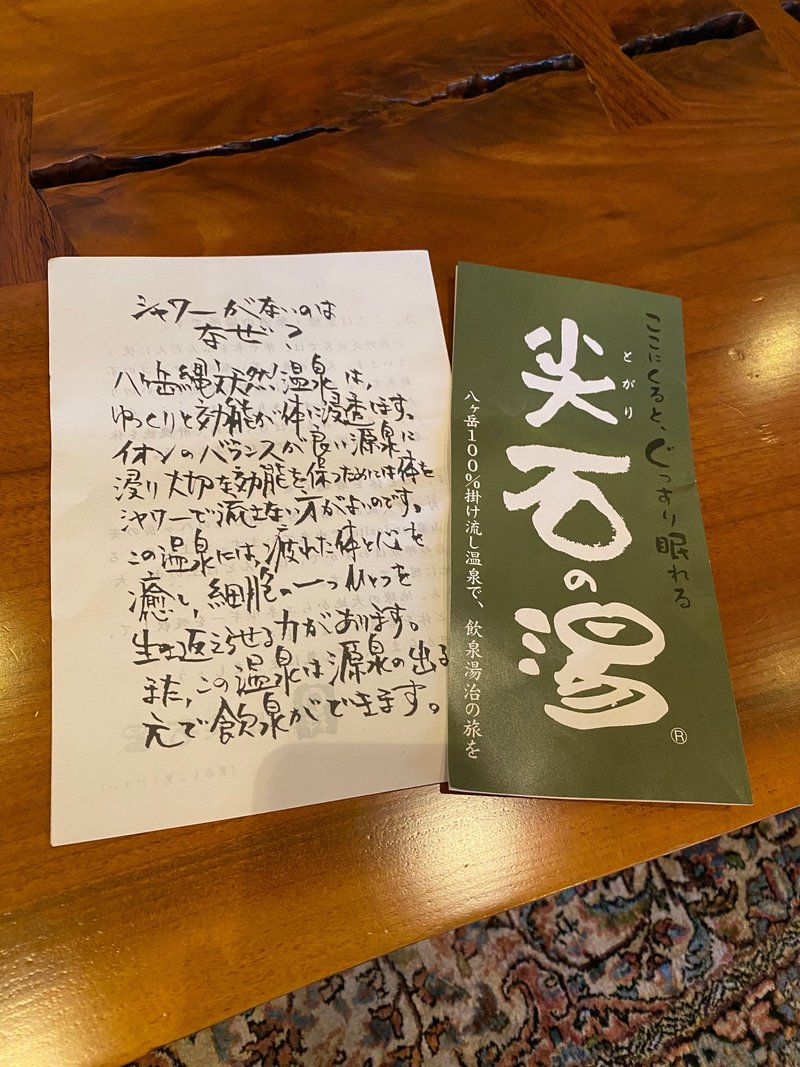 シャワーがないのは
なぜ?
八ヶ岳縄文天然温泉は、
ゆっくりと効能が体に浸透します。
イオンのバランスが良い源泉に
浸り大切な効能を保つためには体を
シャワーで流さない方がよいのです。
この温泉には、疲れた体と心を
癒し、細胞の一つひとつを
生き返えらせる力があります。
また、この温泉は源泉の出る
元で飲泉ができます。
ここにくると、ぐっすり眠れる
とがり
尖石の湯
®
八ヶ岳100%掛け流し温泉で、飲泉湯治の旅を